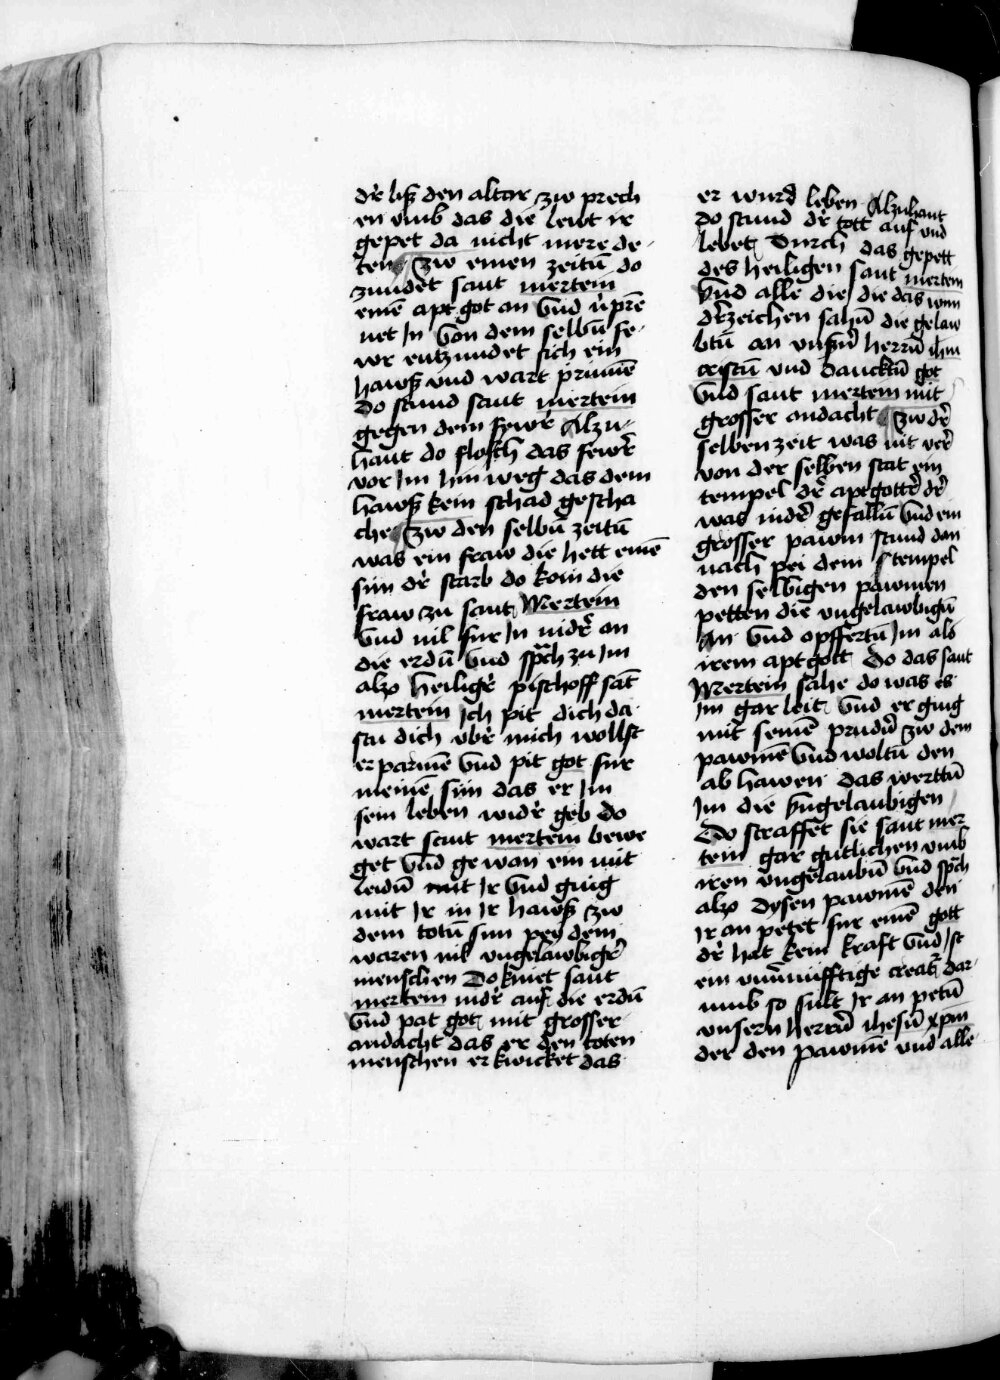 dr̄ liß den altar zw prech
en vmb das die lewt ir
gepet da nicht mere de
ten zw einen zeitū do
zundet sant mertein
einē apt got an vnd v̄prē
net In von dem selbū fe
wr entzundet sich ein
hawß vnd wart prinnē
do stund sant mertein
gegen dem fewr̄ Alzu
hant do flosch das fewr̄
vor Im hin weg das dem
hawß kein schad gescha
che zw den selbū zeitū
was ein fraw die hett einē
sun dr̄ starb do kom die
fraw zu sant Mertein
vnd vil fur In nidr̄ an
die erdū vnd sp̄ch zu Im
alzo heiligr̄ pischoff sāt
mertein Ich pit dich da
stu dich vbr̄ mich wollst
erparmē vnd pit got fur
meinē sun das er Im
sein leben widr̄ geb do
wart sant mertein bewe
get vnd gewan ein mit
leidū mit Ir vnd ging
mit Ir in Ir hawß zw
dem totū sun pey dem
waren vil vngelawbigr̄
menschen Do kniet sant
mertein nidr̄ auf die erdū
vnd pat got mit grosser
andacht das er den toten
menschen erkwicket das
er wurd leben Alzuhant
do stund dr̄ tott auf vnd
lebet Durch das gepett
des heiligen sant mertein
vnd alle die die das wun
dr̄zeichen sahū die gelaw
btū an vnsr̄n herrū ihm
cristū vnd dancktū got
vnd sant mertein mit
grosser andacht zw dr̄
selben zeit was nit verr̄
von der selben stat ein
tempel dr̄ aptgottr̄ dr̄
was nidr̄ gefallū vnd ein
grosser pawm stund dan
nach pei dem tempel
den selbigen pawmen
petten die vngelawbigū
An vnd opffertū Im als
irem aptgott Do das sant
Mertein sahe do was es
Im gar leit vnd er ging
mit seinē prudr̄ zw dem
pawmē vnd woltū den
ab hawen das werttū
Im die vngelaubigen
Do straffet sie sant mer
tein gar gutlichen vmb
iren vngelaubū vnd sp̄ch
alzo dysen pawmē den
Ir an petet fur einē gott
dr̄ hat kein kraft vnd Ist
ein vnūnufftige creatr̄ dar
vmb so sult Ir an petū
vnsern herrū ihesū xpm
der den pawmē vnd alle